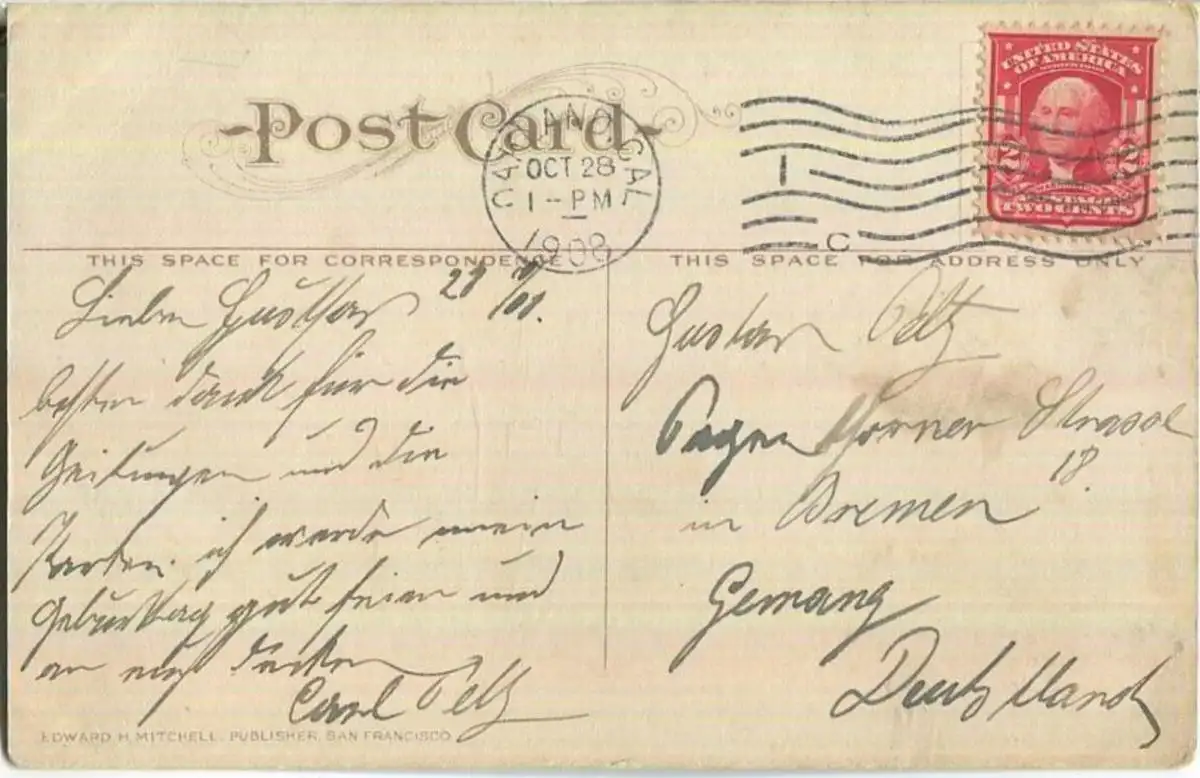 Post Card
OAKLAND CAL
OCT 28
1-PM
1908
1
C
UNITED STATES
OF AMERICA
2 2
TWO CENTS
THIS SPACE FOR CORRESPONDENCE
THIS SPACE FOR ADDRESS ONLY
Lieber Gustav
besten dank für die
Zeitungen und die
Karten. ich werde mein
Geburtstag gut feiern und
an euch denken
Carl Peltz
Gustav Peltz
Pagenthorner Strasse
18.
in Bremen
Gemany
Deutzlland
EDWARD H. MITCHELL, PUBLISHER, SAN FRANCISCO